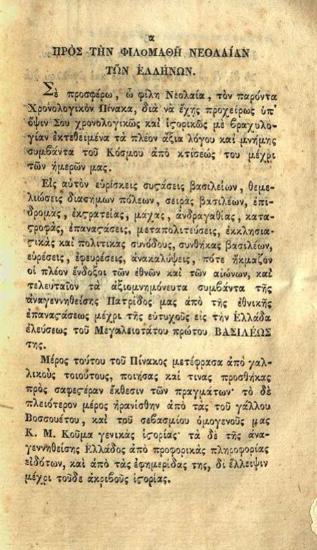 α
ΠΡΟΣ ΤΗΝ ΦΙΛΟΜΑΘΗ ΝΕΟΛΑΙΑΝ
ΤΩΝ ΕΛΛΗΝΩΝ.
Σὲ προσφέρω, ὦ φίλη Νεολαία, τὸν παρόντα
Χρονολογικὸν Πίνακα, διὰ νὰ ἔχῃς προχείρως ὑπ'
ὄψιν Σου χρονολογικῶς καὶ ἱϛορικῶς μὲ βραχυλο-
γίαν ἐκτεθειμένα τὰ πλέον ἄξια λόγου καὶ μνήμης
συμβάντα τοῦ Κόσμου ἀπὸ κτίσεώς του μέχρι
τῶν ἡμερῶν μας.
Εἰς αὐτὸν εὑρίσκεις συϛάσεις βασιλείων, θεμε-
λιώσεις διασήμων πόλεων, σειρὰς βασιλέων, ἐπι-
δρομὰς, ἐκϛρατείας, μάχας, ἀνδραγαθίας, κατα-
ϛροφὰς, ἐπαναϛάσεις, μεταπολιτεύσεις, ἐκκλησια-
ϛικὰς καὶ πολιτικὰς συνόδους, συνθήκας βασιλέων,
εὑρέσεις, ἐφευρέσεις, ἀνακαλύψεις, πότε ἤκμαζον
οἱ πλέον ἔνδοξοι τῶν ἐθνῶν καὶ τῶν αἰώνων, καὶ
τελευταῖον τὰ ἀξιομνημόνευτα συμβάντα τῆς
ἀναγεννηθείσης Πατρίδος μας ἀπὸ τῆς ἐθνικῆς
ἐπαναϛάσεως μέχρι τῆς εὐτυχοῦς εἰς τὴν Ἑλλάδα
ἐλεύσεως τοῦ Μεγαλειοτάτου πρώτου ΒΑΣΙΛΕΩΣ
της.
Μέρος τούτου τοῦ Πίνακος μετέφρασα ἀπὸ γαλ-
λικοὺς τοιούτους, ποιήσας καί τινας προσθήκας
πρὸς σαφεϛέραν ἔκθεσιν τῶν πραγμάτων· τὸ δὲ
πλειότερον μέρος ἠρανίσθην ἀπὸ τὰς τοῦ γάλλου
Βοσσουέτου, καὶ τοῦ σεβασμίου ὁμογενοῦς μας
Κ. Μ. Κούμα γενικὰς ἱϛορίας· τὰ δὲ τῆς ἀνα-
γεννηθείσης Ἑλλάδος ἀπὸ προφορικὰς πληροφορίας
εἰδότων, καὶ ἀπὸ τὰς ἐφημερίδας της, δι' ἔλλειψιν
μέχρι τοῦδε ἀκριβοῦς ἱϛορίας.